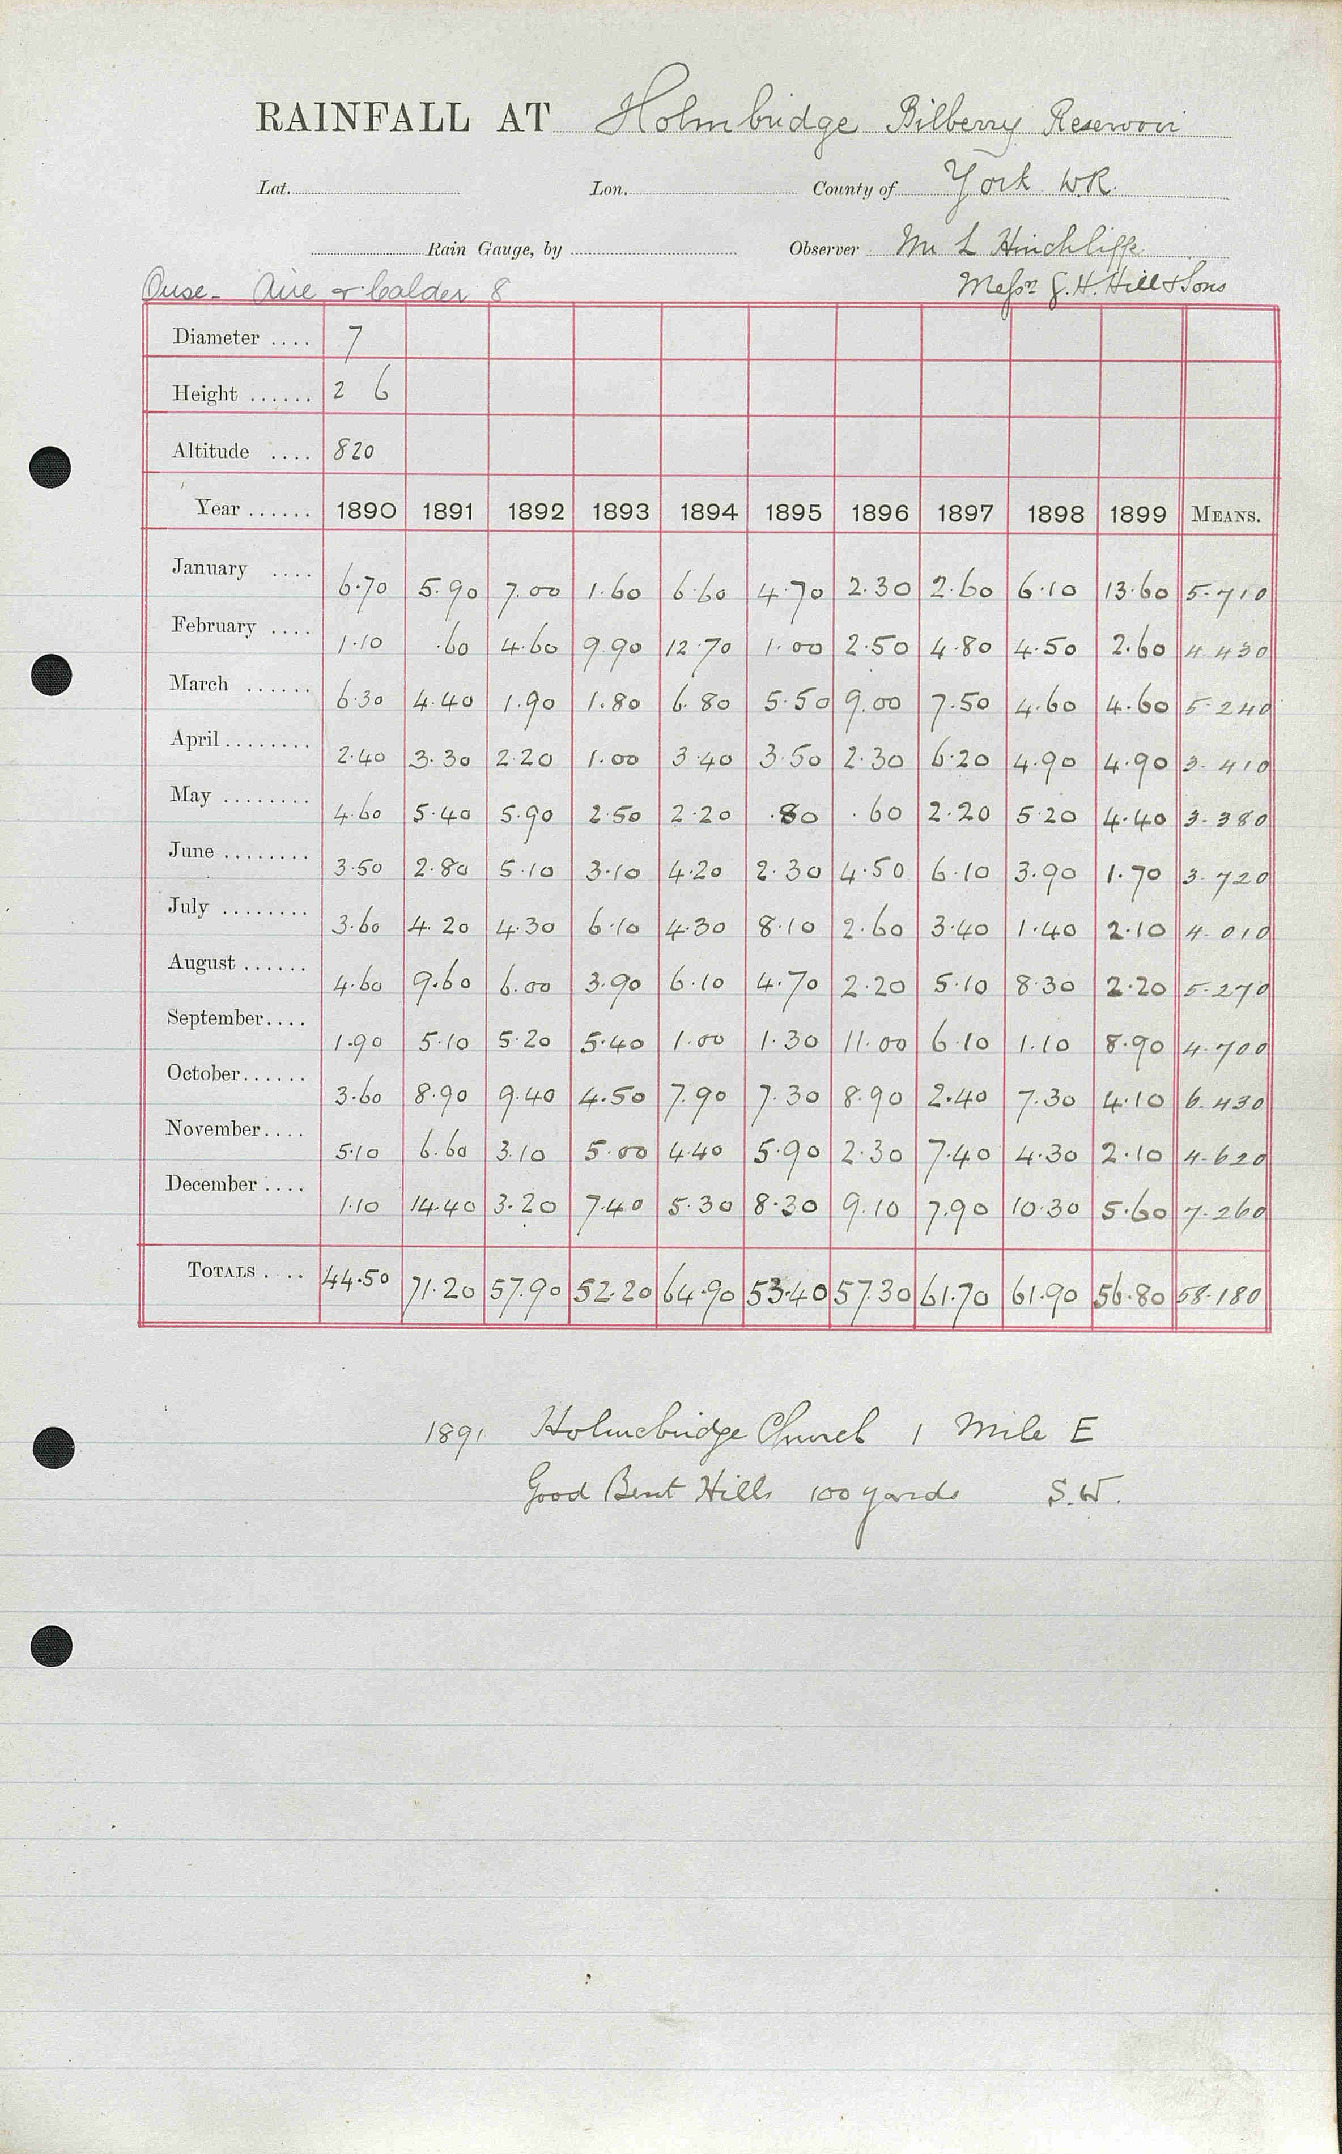 RAINFALL AT Holmbridge Bilberry Reservoir
Lat. Lon. County of York W.R.
Rain Gauge, by Observer Mr L Hinchliffe
Ouse - Aire & Calder 8 Messrs G.H. Hill & Sons
Diameter .... 7
Height ...... 2 6
Altitude .... 820
Year ...... 1890 1891 1892 1893 1894 1895 1896 1897 1898 1899 MEANS.
January .... 6.70 5.90 7.00 1.60 6.60 4.70 2.30 2.60 6.10 13.60 5.710
February .... 1.10 .60 4.60 9.90 12.70 1.00 2.50 4.80 4.50 2.60 4.430
March ...... 6.30 4.40 1.90 1.80 6.80 5.50 9.00 7.50 4.60 4.60 5.240
April ........ 2.40 3.30 2.20 1.00 3.40 3.50 2.30 6.20 4.90 4.90 3.410
May ........ 4.60 5.40 5.90 2.50 2.20 .80 .60 2.20 5.20 4.40 3.380
June ........ 3.50 2.80 5.10 3.10 4.20 2.30 4.50 6.10 3.90 1.70 3.720
July ........ 3.60 4.20 4.30 6.10 4.30 8.10 2.60 3.40 1.40 2.10 4.010
August ...... 4.60 9.60 6.00 3.90 6.10 4.70 2.20 5.10 8.30 2.20 5.270
September.... 1.90 5.10 5.20 5.40 1.00 1.30 11.00 6.10 1.10 8.90 4.700
October...... 3.60 8.90 9.40 4.50 7.90 7.30 8.90 2.40 7.30 4.10 6.430
November.... 5.10 6.60 3.10 5.00 4.40 5.90 2.30 7.40 4.30 2.10 4.620
December .... 1.10 14.40 3.20 7.40 5.30 8.30 9.10 7.90 10.30 5.60 7.260
TOTALS .... 44.50 71.20 57.90 52.20 64.90 53.40 57.30 61.70 61.90 56.80 58.180
1891 Holmebridge Church 1 Mile E
Good Bent Hills 100 yards S.W.